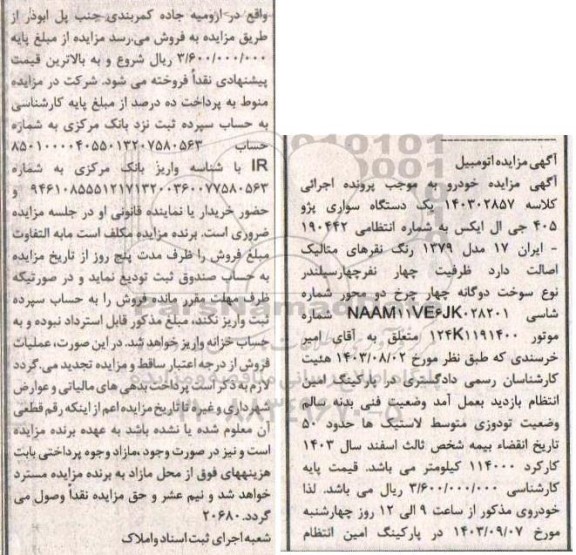 آگهی مزایده اتومبیل
آگهی مزایده خودرو به موجب پرونده اجرائی
کلاسه ۱۴۰۳۰۲۸۵۷ یک دستگاه سواری پژو
۴۰۵ جی ال ایکس به شماره انتظامی ۱۹۰۴۴۲
- ایران ۱۷ مدل ۱۳۷۹ رنگ نقرهای متالیک
اصالت دارد ظرفیت چهار نفرچهارسیلندر
نوع سوخت دوگانه چهار چرخ دو محور شماره
شاسی NAAM۱۱VE۶JK۰۲۸۲۰۱ شماره
موتور ۱۲۴K۱۱۹۱۴۰۰ متعلق به آقای امیر
خرسندی که طبق نظر مورخ ۱۴۰۳/۰۸/۰۲ هئیت
کارشناسان رسمی دادگستری در پارکینگ امین
انتظام بازدید بعمل آمد وضعیت فنی بدنه سالم
وضعیت تودوزی متوسط لاستیک ها حدود ۵۰
تاریخ انقضاء بیمه شخص ثالث اسفند سال ۱۴۰۳
کارکرد ۱۱۴۰۰۰ کیلومتر می باشد. قیمت پایه
کارشناسی ۳/۶۰۰/۰۰۰/۰۰۰ ریال می باشد. لذا
خودروی مذکور از ساعت ۹ الی ۱۲ روز چهارشنبه
مورخ ۱۴۰۳/۰۹/۰۷ در پارکینگ امین انتظام
واقع در ارومیه جاده کمربندی جنب پل ابوذر از
طریق مزایده به فروش می‌رسد مزایده از مبلغ پایه
۳/۶۰۰/۰۰۰/۰۰۰ ریال شروع و به بالاترین قیمت
پیشنهادی نقداً فروخته می شود. شرکت در مزایده
منوط به پرداخت ده درصد از مبلغ پایه کارشناسی
به حساب سپرده ثبت نزد بانک مرکزی به شماره
حساب ۸۵۰۱۰۰۰۰۴۰۵۵۰۱۳۲۰۷۵۸۰۵۶۳
IR با شناسه واریز بانک مرکزی به شماره
۹۴۶۱۰۸۵۵۵۱۲۱۷۱۳۲۰۰۳۶۰۰۷۷۵۸۰۵۶۳ و
حضور خریدار یا نماینده قانونی او در جلسه مزایده
ضروری است. برنده مزایده مکلف است مابه التفاوت
مبلغ فروش را ظرف مدت پنج روز از تاریخ مزایده
به حساب صندوق ثبت تودیع نماید و در صورتیگه
ظرف مهلت مقرر مانده فروش را به حساب سپرده
ثبت واریز نکند، مبلغ مذکور قابل استرداد نبوده و به
حساب خزانه واریز خواهد شد. در این صورت، عملیات
فروش از درجه اعتبار ساقط و مزایده تجدید می‌گردد
لازم به ذکر است پرداخت بدهی های مالیاتی و عوارض
شهرداری و غیره تا تاریخ مزایده اعم از اینکه رقم قطعی
آن معلوم شده یا نشده باشد به عهده برنده مزایده
است و نیز در صورت وجود ،مازاد وجوه پرداختی بابت
هزینههای فوق از محل مازاد به برنده مزایده مسترد
خواهد شد و نیم عشر و حق مزایده نقداً وصول می
گردد.۲۰۶۸۰
شعبه اجرای ثبت اسناد و املاک